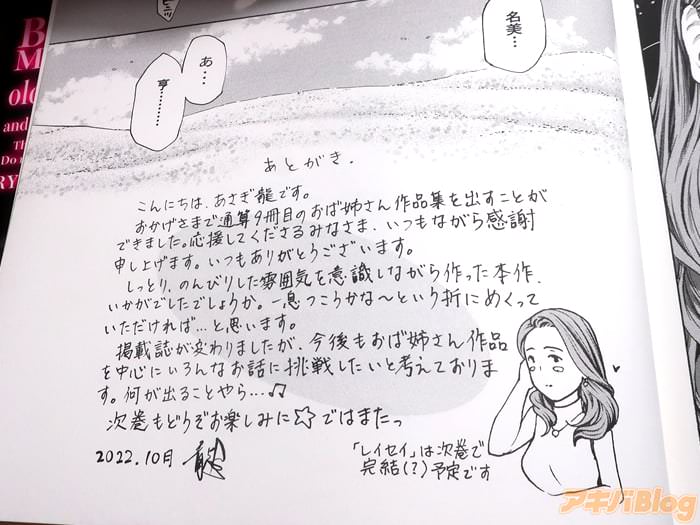 名美…
あ…
亨………
あとがき.
こんにちは、あさぎ龍です。
おかげさまで通算9冊目のおば姉さん作品集を出すことが
できました。応援してくださるみなさま、いつもながら感謝
申し上げます。いつもありがとうございます。
しっとり、のんびりした雰囲気を意識しながら作った本作、
いかがでしたでしょうか。一息つこうかな〜という折にめくって
いただければ…と思います。
掲載誌が変わりましたが、今後もおば姉さん作品
を中心にいろんなお話に挑戦したいと考えておりま
す。何が出ることやら…♫
次巻もどうぞお楽しみに☆ではまたっ
2022.10月 龍
「レイセイ」は次巻で
完結(?)予定です
アキバBlog